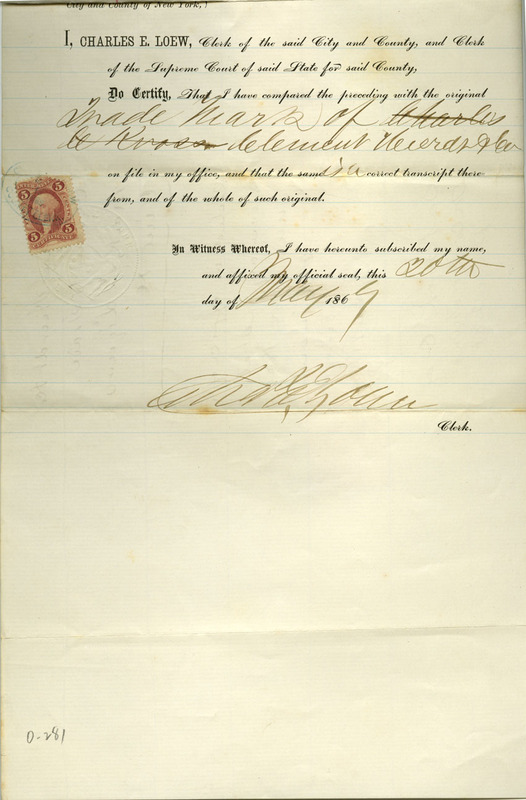 City and County of New York,
I, CHARLES E. LOEW, Clerk of the said City and County, and Clerk
of the Supreme Court of said State for said County,
Do Certify, That I have compared the preceding with the original
Trade Mark of Charles
Clement Heerdt & Co
on file in my office, and that the same is a correct transcript there
from, and of the whole of such original.
In Witness Whereof, I have hereunto subscribed my name,
and affixed my official seal, this 20th
day of May 1869
Chas E Loew
Clerk.
5 5
5 5
0-281